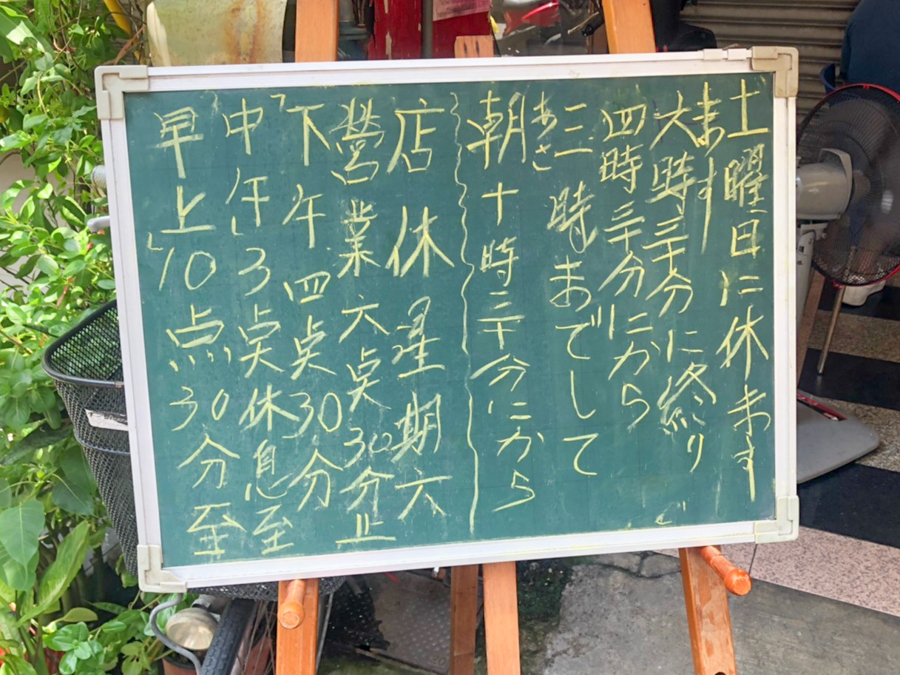 早上10点30分至
中午3点休息至
下午四点30分
營業六点30分止
店休 星期六
朝十時三十分にから
あさ
三時までして
四時三十分にから
大時三十分に終り
ます
土曜日に休ます